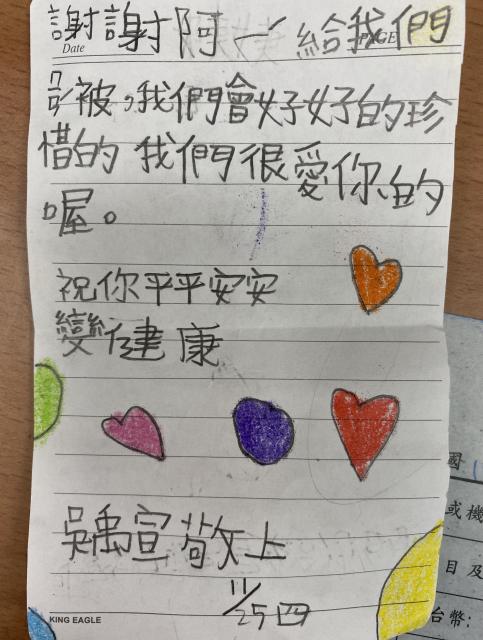 謝謝阿一給我們
Date
PAGE
ㄇㄢˊ被,我們會好好的珍
惜的 我們很愛你的
喔。
祝你平平安安
變健康
吳禹宣 敬上
11/25 四
KING EAGLE
國
或機
目及
台幣: